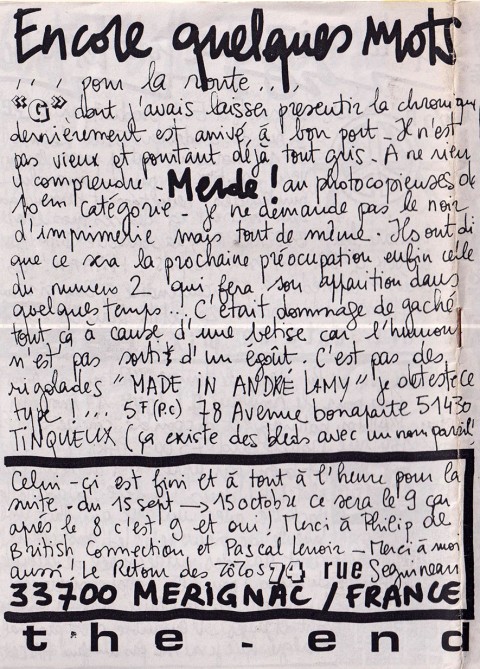 Encore quelques Mots
,,, pour la route...
"G" dont j'avais laisser presentir la chronique
dernièrement est arrivé à bon port - Il n'est
pas vieux et pourtant déjà tout gris - A ne rien
y comprendre - Merde ! au photocopieuses de
catégorie - je ne demande pas le noir
d'imprimerie mais tout de même. Ils ont di
que ce sera la prochaine préocupation enfin celle
du numero 2 qui fera son apparition dans
quelques temps... C'était dommage de gaché
tout ça à cause d'une betise car l'humour
n'est pas sortit d'un égoût. C'est pas des
rigolades "MADE IN ANDRÉ LAMY" je deteste ce
type !... 5F (P.C) 78 Avenue bonaparte 51430
TINQUEUX (ça existe des bleds avec un nom pareil
Celui-çi est fini et à tout à l'heure pour la
suite - du 15 sept → 15 octobre ce sera le 9 car
après le 8 c'est 9 et oui ! Merci à Philip de
British Connection et Pascal Lenoir - Merci à moi
aussi ! Le Retour des ZoZos 74 rue Seguineau
33700 MERIGNAC / FRANCE
the - end